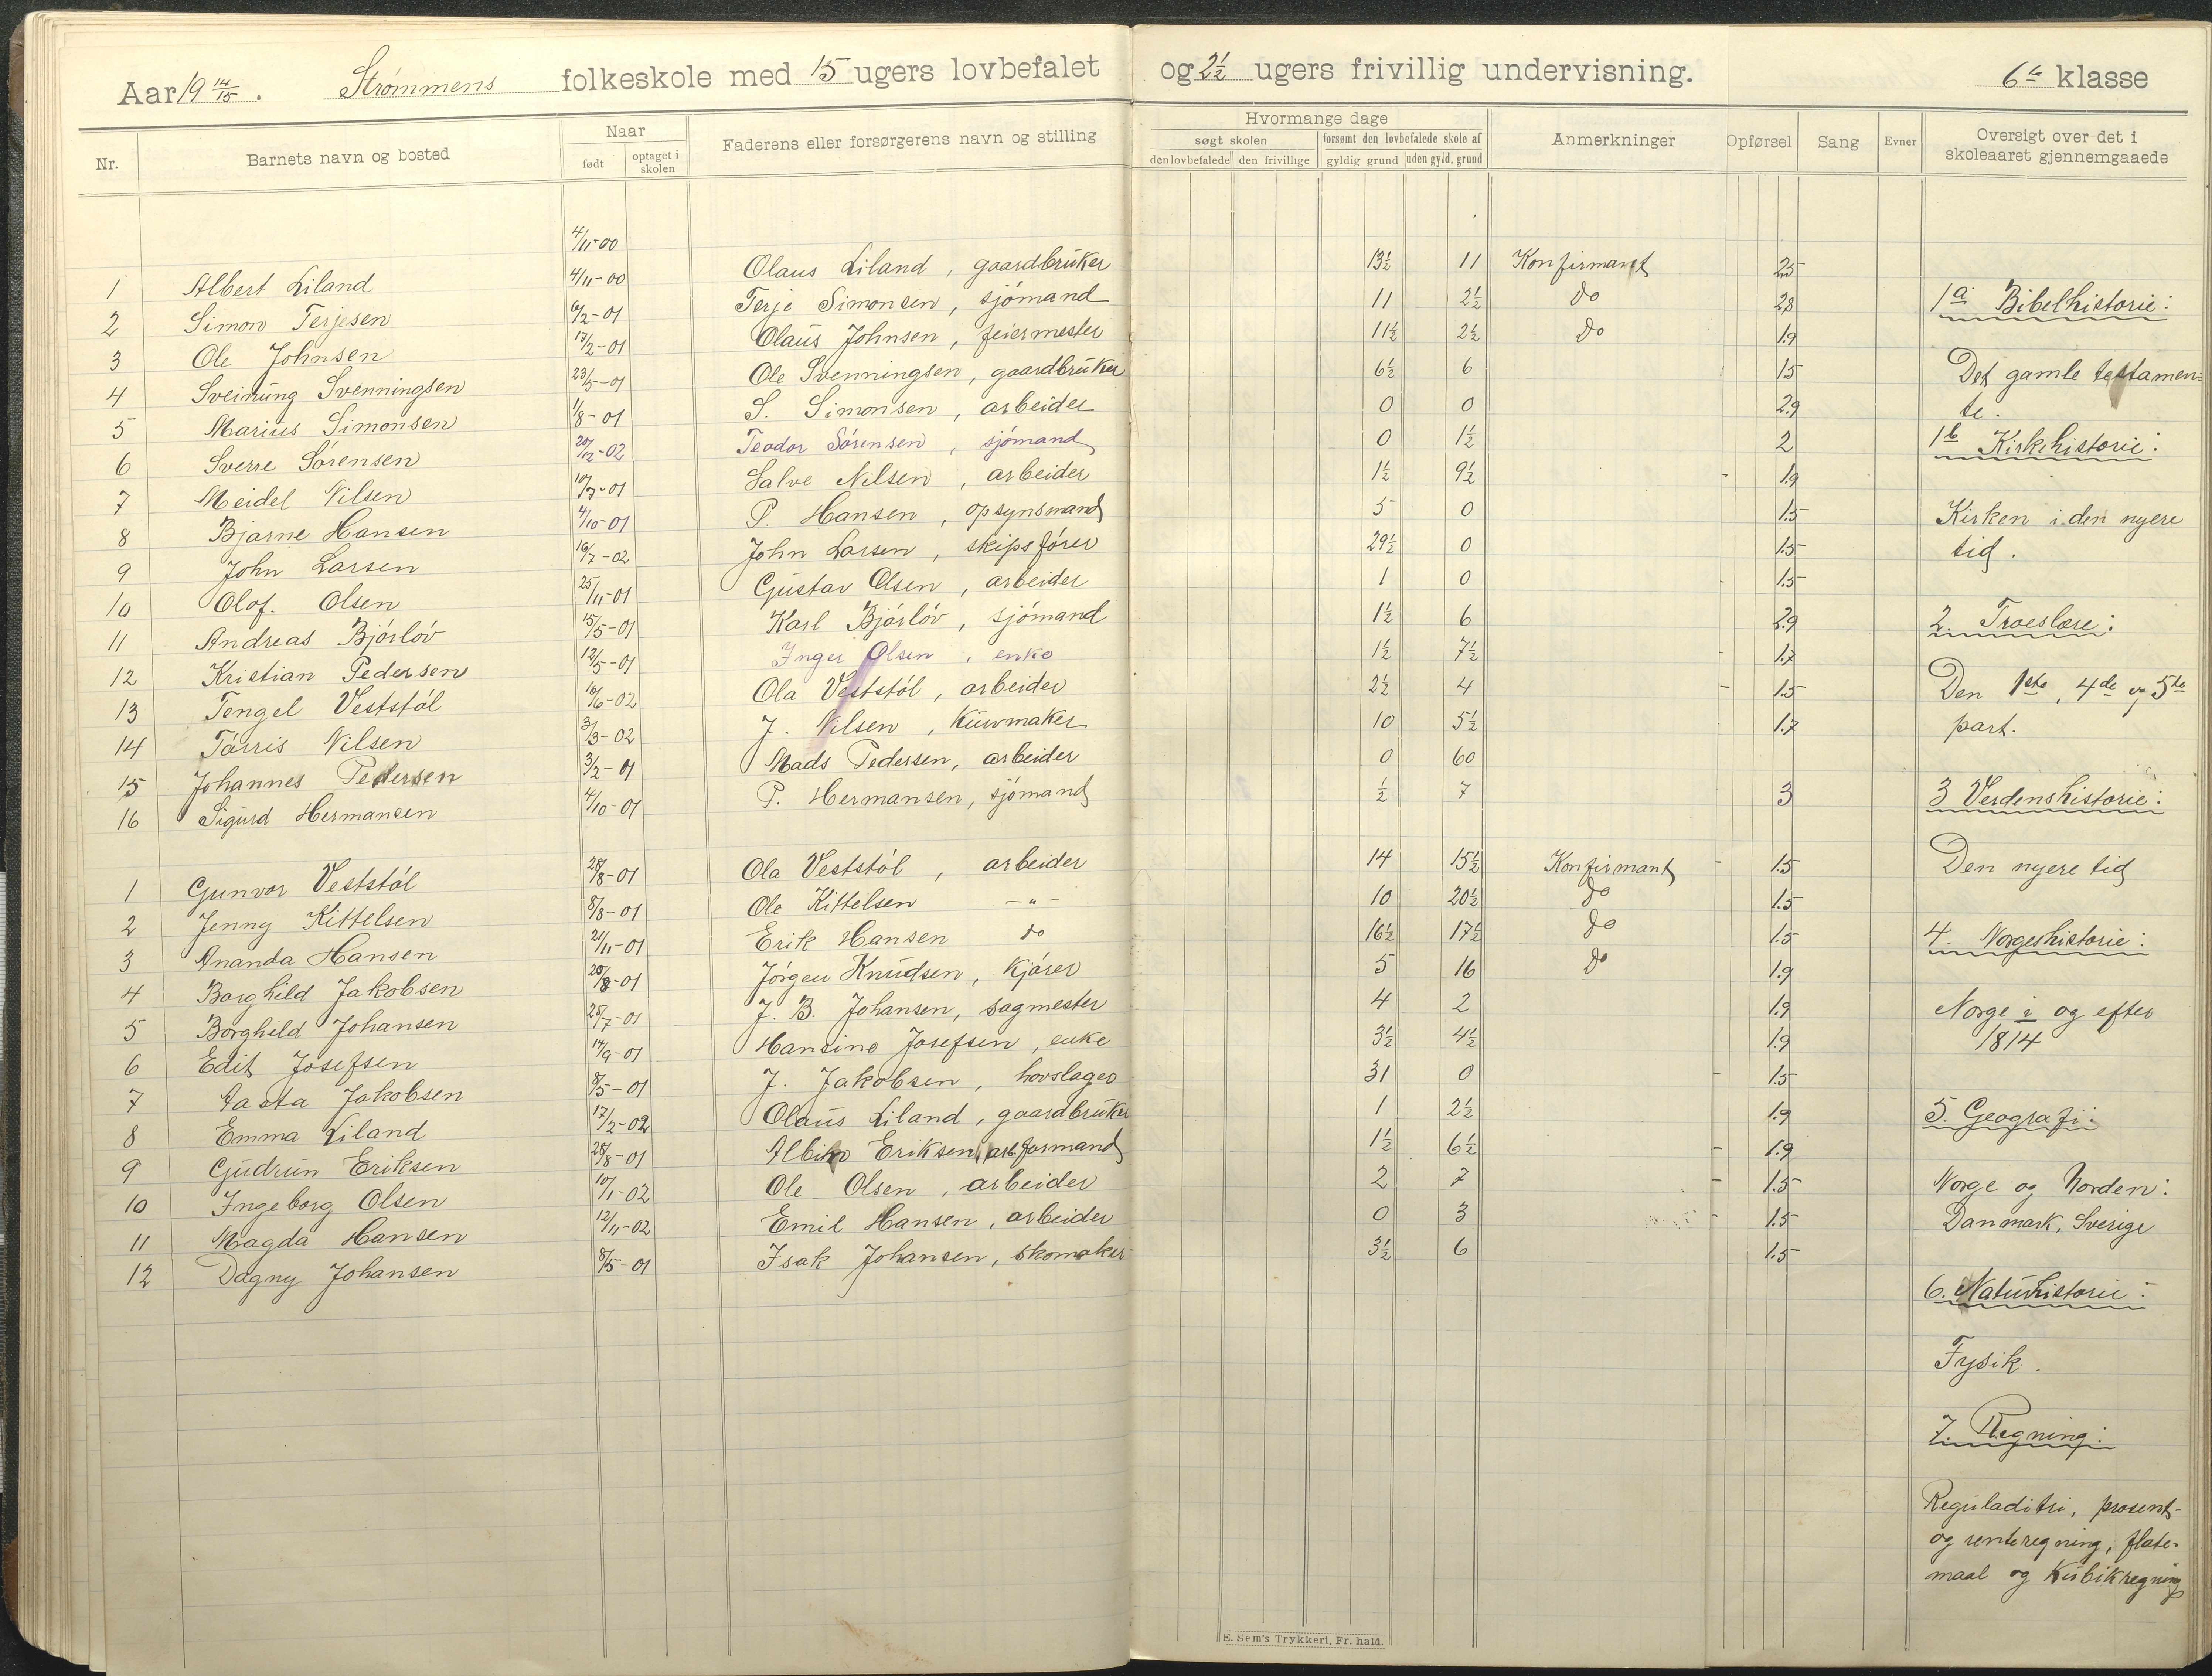 Aar 19 14/15. Strømmens folkeskole med 15 ugers lovbefalet og 2 1/2 ugers frivillig undervisning. 6te klasse
Nr. Barnets navn og bosted Naar født optaget i skolen Faderens eller forsørgerens navn og stilling Hvormange dage søgt skolen den lovbefalede den frivillige forsømt den lovbefalede skole af gyldig grund uden gyld. grund Anmerkninger Opførsel Sang Evner Oversigt over det i skoleaaret gjennemgaaede
4/11-00
1 Albert Liland 4/11-00 Olaus Liland, gaardbruker 13½ 11 Konfirmant 2.5
2 Simon Terjesen 6/2-01 Terje Simonsen, sjömand 11 2½ do 2.8
3 Ole Johnsen 17/2-01 Olaus Johnsen, feiermester 11½ 2½ do 1.9
4 Sveinung Svenningsen 23/5-01 Ole Svenningsen, gaardbruker 6½ 6 1.5
5 Marius Simonsen 1/8-01 S. Simonsen, arbeider 0 0 2.9
6 Sverre Sörensen 20/12-02 Teodor Sörensen, sjömand 0 1½ 2
7 Meidel Nilsen 10/7-01 Salve Nilsen, arbeider 1½ 9½ 1.9
8 Bjarne Hansen 4/10-01 P. Hansen, opsynsmand 5 0 1.5
9 John Larsen 16/7-02 John Larsen, skipsförer 29½ 0 1.5
10 Olof. Olsen 25/11-01 Gustav Olsen, arbeider 1 0 1.5
11 Andreas Bjórlöv 15/5-01 Karl Bjórlöv, sjómand 1½ 6 2.9
12 Kristian Pedersen 12/5-01 Inger Olsen, enke 1½ 7½ 1.7
13 Tengel Veststöl 16/6-02 Ola Veststól, arbeider 2½ 4 1.5
14 Tárris Nilsen 3/3-02 J. Nilsen, kurvmaker 10 5½ 1.7
15 Johannes Pedersen 3/2-01 Mads Pedersen, arbeider 0 60
16 Sigurd Hermansen 4/10-01 P. Hermansen, sjömand ½ 7 3
1 Gunvor Veststöl 28/8-01 Ola Veststól, arbeider 14 15½ Konfirmant 1.5
2 Jenny Kittelsen 8/8-01 Ole Kittelsen -"- 10 20½ do 1.5
3 Ananda Hansen 21/11-01 Erik Hansen do 16½ 17½ do 1.5
4 Borghild Jakobsen 20/8-01 Jörgen Knudsen, kjörer 5 16 do 1.9
5 Borghild Johansen 25/7-01 J. B. Johansen, sagmester 4 2 1.9
6 Edit Josefsen 14/9-01 Hansine Josefsen, enke 3½ 4½ 1.9
7 Aasta Jakobsen 8/5-01 J. Jakobsen, hovslager 31 0 1.5
8 Emma Liland 17/2-02 Olaus Liland, gaardbruker 1 2½ 1.9
9 Gudrun Eriksen 28/8-01 Eriksen, arb.formand 1½ 6½ 1.9
10 Ingeborg Olsen 10/1-02 Ole Olsen, arbeider 2 7 1.5
11 Magda Hansen 12/11-02 Emil Hansen, arbeider 0 3 1.5
12 Dagny Johansen 8/5-01 Isak Johansen, skomaker 3½ 6 1.5
1a Bibelhistorie:
Det gamle testamen=
te.
1b Kirkehistorie:
Kirken i den nyere
tid.
2. Troeslære:
Den 1ste, 4de og 5te
part.
3 Verdenshistorie:
Den nyere tid
4. Norgeshistorie:
Norge i og efter
1814
5. Geografi:
Norge og Norden:
Danmark, Sverige
6. Naturhistorie:
Fysik.
7. Regning:
Reguladitri, prosent-
og renteregning, flate-
maal og Kubikregning
E. Sem's Trykkeri, Fr. hald.